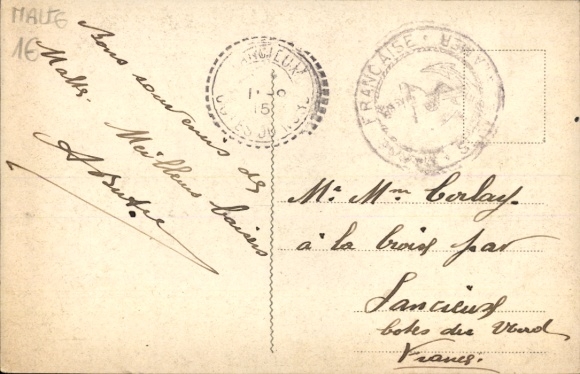 MALTE
1€
Bons souvenirs de
Malte.
Meilleurs baisers
LANCIEUX
15
FRANÇAISE
Mr Mme
à la Croix par
Lancieux
Cotes du Nord
France.